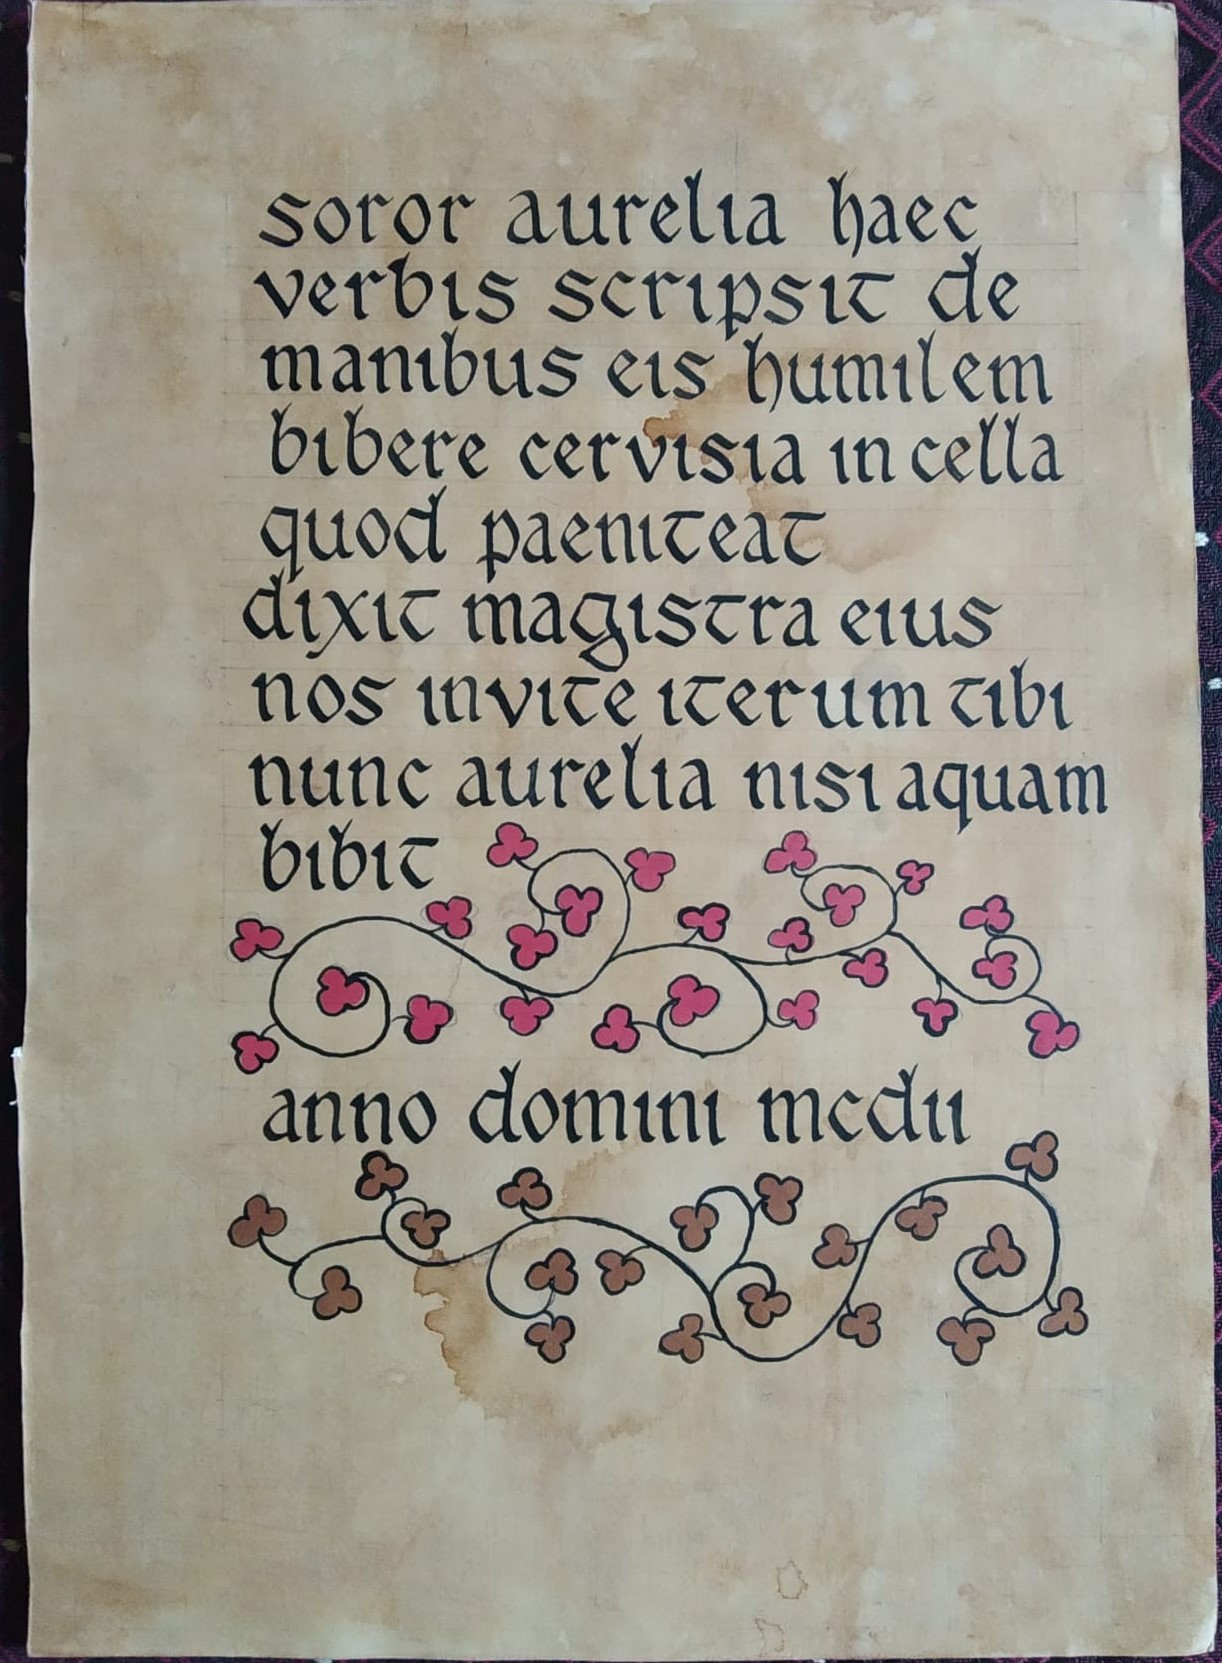 soror aurelia haec
verbis scripsit de
manibus eis humilem
bibere cervisia in cella
quod paeniteat
dixit magistra eius
nos invite iterum tibi
nunc aurelia nisi aquam
bibit
anno domini mcdii